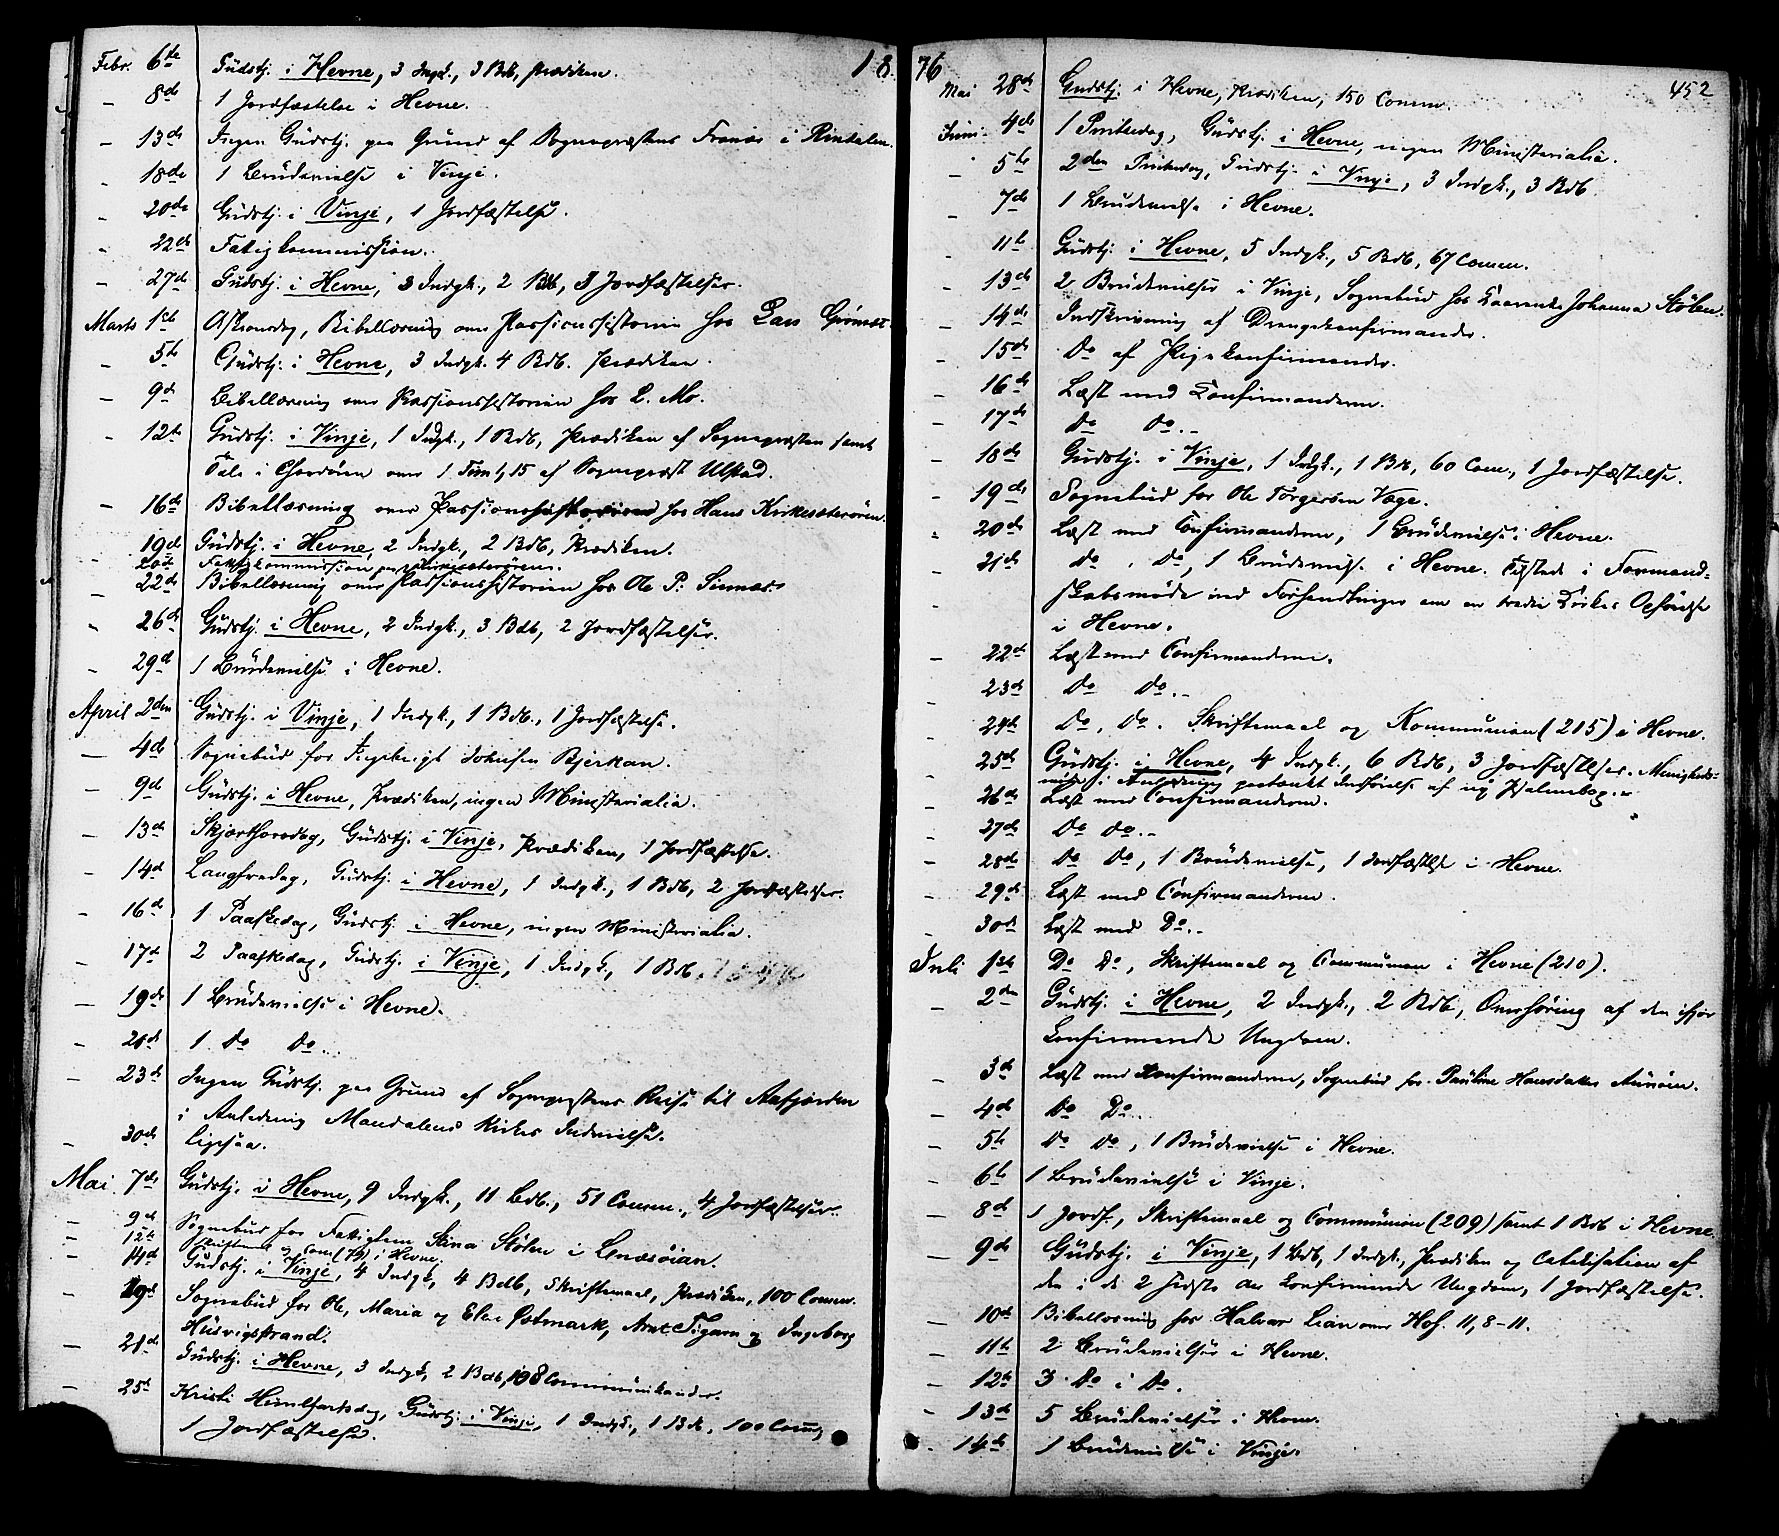 1876
452
Febr. 6te Gudstj. i Hevne, 3 Indgk., 3 Bdb, Prædiken.
— 8de 1 Jordfæstelse i Hevne.
— 13de Ingen Gudstj. paa Grund af Sognepræstens i Rindalen.
— 18de 1 Brudevielse i Vinje.
— 20de Gudstj. i Vinje, 1 Jordfæstelse.
— 22de Fatigkommission.
— 27de Gudstj. i Hevne, 3 Indgk., 2 Bdb, 3 Jordfæstelser.
Marts 1ste Askeonsdag, Bibellæsning over Passionshistorien hos Lars
— 5te Gudstj. i Hevne, 3 Indgk. 4 Bdb. Prædiken.
— 9de Bibellæsning over Passionshistorien hos L. Mo.
— 12te Gudstj. i Vinje, 1 Indgk., 1 Bdb, Prædiken af Sognepræsten samt
Tale i Chordøren over 1 Tim 1,15 af Sognepræst Ulstad.
— 16de Bibellæsning over Passionshistorien hos Hans Kirkesæterøren.
— 19de Gudstj. i Hevne, 2 Indgk., 2 Bdb, Prædiken.
20de Fatigkommission paa Kirkesæterøren.
— 22de Bibellæsning over Passionshistorien hos Ole P. Sinnæs
— 26de Gudstj. i Hevne, 2 Indgk., 3 Bdb, 2 Jordfæstelser.
— 29de 1 Brudevielse i Hevne.
April 2den Gudstj. i Vinje, 1 Indgk., 1 Bdb., 1 Jordfæstelse.
— 4de Sognebud for Ingebrigt Johnsen Bjerkan.
— 9de Gudstj. i Hevne, Prædiken, ingen Ministerialia.
— 13de Skjærthorsdag, Gudstj. i Vinje, Prædiken, 1 Jordfæstelse.
— 14de Langfredag, Gudstj. i Hevne, 1 Indgk., 1 Bdb, 2 Jordfæstelser.
— 16de 1 Paaskedag, Gudstj. i Hevne, ingen Ministerialia.
— 17de 2 Paaskedag, Gudstj. i Vinje, 1 Indgk, 1 Bdb.
— 19de 1 Brudevielse i Hevne.
— 20de 1 Do Do.
— 23de Ingen Gudstj. paa Grund af Sognepræstens Reise til Aafjorden
i Anledning Mandalens Kirkes Indvielse.
— 30de ligesaa.
Mai. 7de Gudstj. i Hevne, 9 Indgk., 11 Bdb., 51 Comm., 4 Jordfæstelser.
— 9de Sognebud for Fatiglem Stina Stølen i Snæsøian.
— 12te Skriftemaal og Com (79) i Hevne.
— 14de Gudstj. i Vinje, 4 Indgk, 4 Bdb, Skriftemaal, Prædiken, 100 Comm.
— 19de Sognebud for Ole, Maria og Elen Østmark, Arnt Tigam og Ingeborg
Husvigstrand.
— 21de Gudstj. i Hevne, 3 Indgk, 2 Bdb, 108 Communikander.
— 25de Kristi Himlfartsdag, Gudstj. i Vinje, 1 Indgk., 1 Bdb, 100 Comm,
1 Jordfæstelse.
Mai 28de Gudstj. i Hevne, Prædiken, 150 Comm.
Juni 4de 1 Pintsedag, Gudstj. i Hevne, ingen Ministerialia.
— 5te 2den Pintsedag, Gudstj. i Vinje, 3 Indgk., 3 Bdb.
— 7de 1 Brudevielse i Hevne.
— 11te Gudstj. i Hevne, 5 Indgk., 5 Bdb, 67 Comm.
— 13de 2 Brudevielser i Vinje, Sognebud hos Johanna Stølen.
— 14de Indskrivning af Drengekonfirmander.
— 15de Do af Pigekonfirmander.
— 16de Læst med Konfirmanderne.
— 17de Do Do.
— 18de Gudstj. i Vinje, 1 Indgk., 1 Bdb, 60 Com., 1 Jordfæstelse.
— 19de Sognebud for Ole Torgersen Vage.
— 20de Læst med Confirmanderne, 1 Brudevielse i Hevne.
— 21de do, do, 1 Brudevielse i Hevne. Tilstede i Formand=
skabsmøde ved Forhandlinger om en tredie Kirkes Opførelse
i Hevne.
— 22de Læst med Confirmanderne.
— 23de Do Do.
— 24de Do, Do. Skriftemaal og Kommunion (215) i Hevne.
— 25de Gudstj. i Hevne, 4 Indgk., 6 Bdb, 3 Jordfæstelser. Menigheds=
møde i Anledning paatænkt Indførelse af ny Psalmebog.
— 26de Læst med Confirmanderne.
— 27de Do do.
— 28de Do Do, 1 Brudevielse, 1 Jordfæstelse i Hevne.
— 29de Læst med Confirmanderne.
— 30te Læst med Do.
Juli 1ste Do Do, Skriftemaal og Communion i Hevne (210).
— 2den Gudstj. i Hevne, 2 Indgk., 2 Bdb, Overhøring af den ifjor
Confirmerede Ungdom.
— 3de Læst med Confirmanderne, Sognebud for Pauline Hansdatter Aunøien.
— 4de Do Do.
— 5te Do Do, 1 Brudevielse i Hevne.
— 6te 1 Brudevielse i Vinje.
— 8de 1 Jordf., Skriftemaal og Communion (209) samt 1 Bdb i Hevne.
— 9de Gudstj. i Vinje, 1 Bdb, 1 Indgk., Prædiken og Catekisation af
den i de 2 sidste Aar Confirmerede Ungdom, 1 Jordfæstelse.
— 10de Bibellæsning hos Halvor Lian over Hos. 11, 8-11.
— 11te 2 Brudevielser i Hevne.
— 12te 3 Do i Do.
— 13de 5 Brudevielser i Hevne.
— 14de 1 Brudevielse i Vinje.